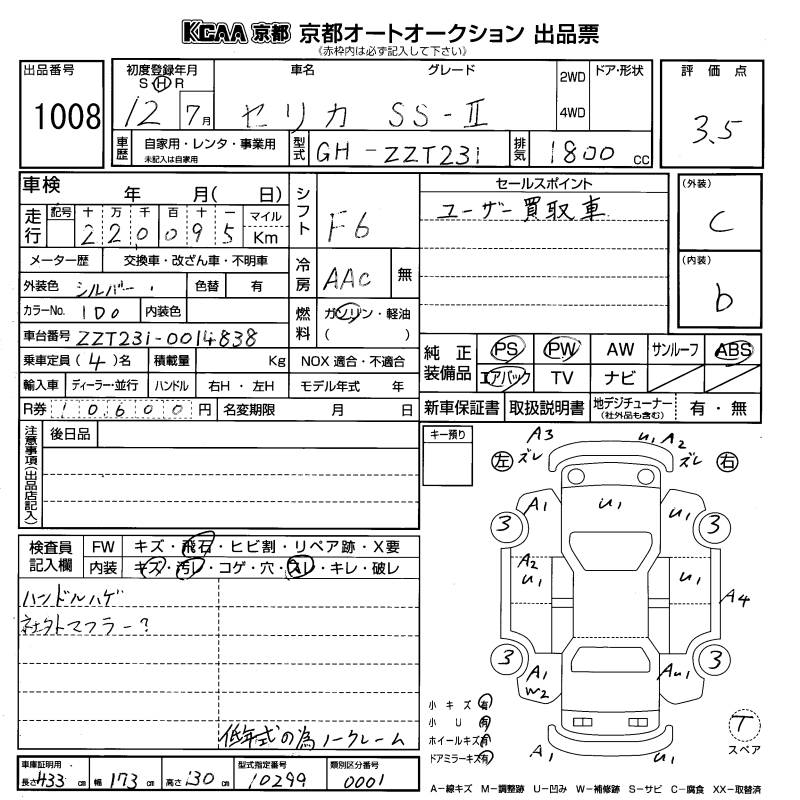 KCAA 京都 京都オートオークション 出品票
《赤枠内は必ず記入して下さい》
出品番号 初度登録年月 車名 グレード 2WD ドア・形状 評価点
S H R
1008 12 7月 セリカ SS-Ⅱ 4WD 3.5
車歴 自家用・レンタ・事業用 型式 GH-ZZT231 排気 1800 CC
未記入は自家用
車検 年 月( 日) シフト F6 セールスポイント (外装)
走行 記号 十 万 千 百 十 一 マイル ユーザー買取車 C
2 2 0 0 9 5 Km
メーター歴 交換車・改ざん車・不明車 冷房 AAC 無 (内装)
外装色 シルバー 色替 有 b
カラーNo. 1D0 内装色 燃料 ガソリン・軽油
車台番号 ZZT231-0014838 ( )
乗車定員(4)名 積載量 Kg NOX 適合・不適合 純正装備品 PS PW AW サンルーフ ABS
輸入車 ディーラー・並行 ハンドル 右H・左H モデル年式 年 エアバック TV ナビ
R券 10600円 名変期限 月 日 新車保証書 取扱説明書 地デジチューナー 有・無
(社外品も含む)
注意事項(出品店記入) 後日品 キー預り A3 U1 A2
ズレ ズレ
左 右
A1 U1 U1
3 3
検査員記入欄 FW キズ・飛石・ヒビ割・リペア跡・X要
内装 キズ・汚レ・コゲ・穴・スレ・キレ・破レ A2
U1 U1
ハンドルハゲ A4
社外マフラー?
3 3
A1 AU1
W2
小キズ 有
小U 有
ホイールキズ 有
ドアミラーキズ 有
T
スペア
低年式の為ノークレーム A1 U1
車庫証明用 型式指定番号 類別区分番号
長さ433cm 幅173cm 高さ130cm 10299 0001
A−線キズ M−調整跡 U−凹み W−補修跡 S−サビ C−腐食 XX−取替済